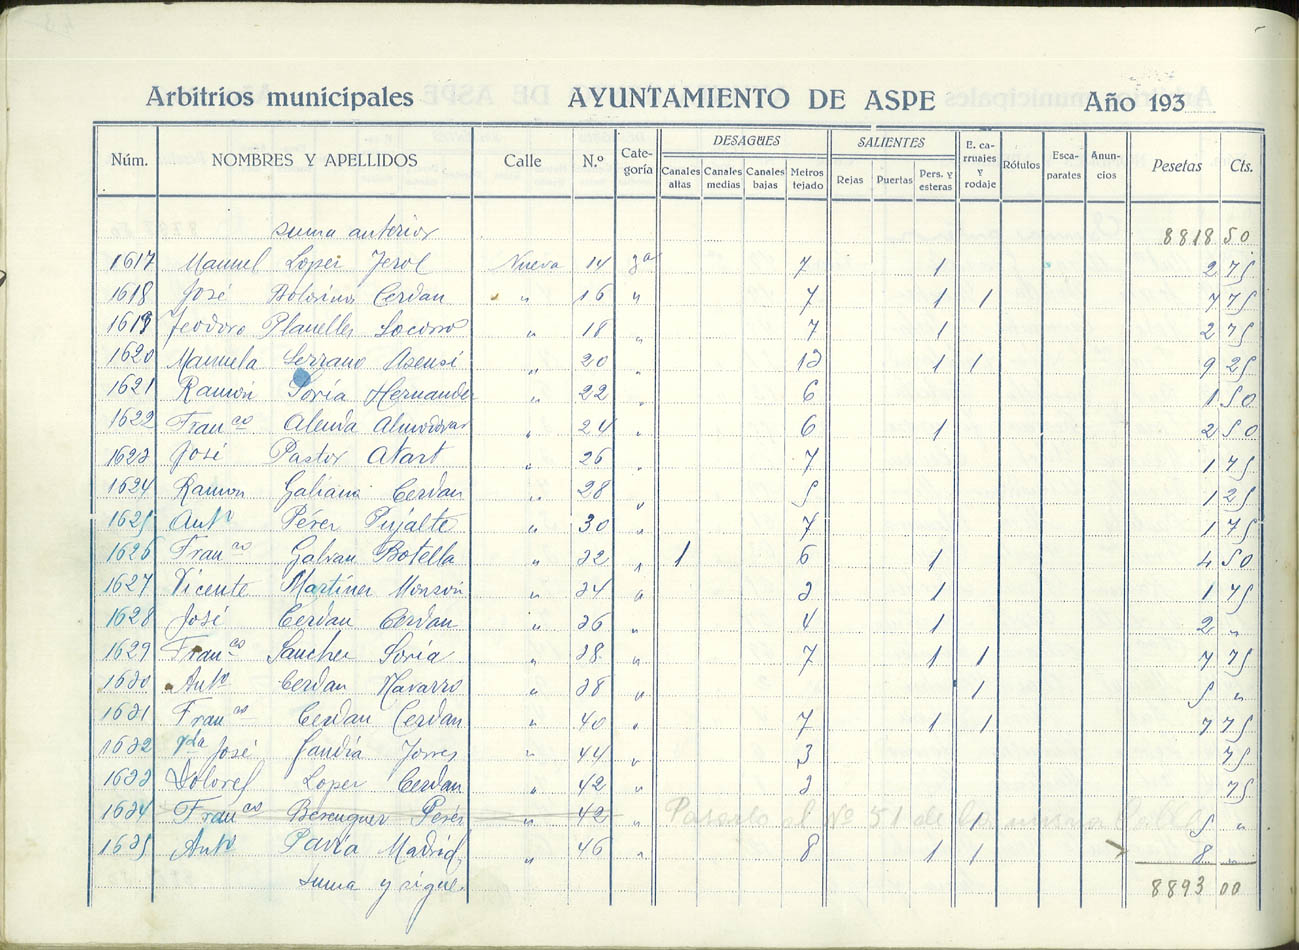 Arbitrios municipales AYUNTAMIENTO DE ASPE Año 193
Núm. NOMBRES Y APELLIDOS Calle N.º Cate-goría DESAGÜES Canales altas Canales medias Canales bajas Metros tejado SALIENTES Rejas Puertas Pers. y esteras E. ca-rruajes y rodaje Rótulos Esca-parates Anun-cios Pesetas Cts.
suma anterior 8818 50
1617 Manuel Lopez Jerol Nueva 14 3ª 7 1 2 75
1618 José Bolorinos Cerdan " 16 " 7 1 1 7 75
1619 Teodoro Planelles Socorro " 18 " 7 1 2 75
1620 Manuela Serrano Asensi " 20 " 13 1 1 9 25
1621 Ramón Soria Hernandez " 22 " 6 1 50
1622 Fran.co Alenda Almodovar " 24 " 6 1 2 50
1623 José Pastor " 26 " 7 1 75
1624 Ramon Galiana Cerdan " 28 " 5 1 25
1625 Antº Pérez Pujalte " 30 " 7 1 75
1626 Fran.co Galvan Botella " 32 " 1 6 1 4 50
1627 Vicente Martínez Monzón " 34 " 3 1 1 75
1628 José Cerdan Cerdan " 36 " 4 1 2 "
1629 Fran.co Sanchez Soria " 38 " 7 1 1 7 75
1630 Antº Cerdan Navarro " 38 " 1 5 "
1631 Fran.co Cerdan Cerdan " 40 " 7 1 1 7 75
1632 Vda José Gandía Torres " 44 " 3 75
1633 Dolores Lopez Cerdan " 42 " 3 75
1634 Fran.co Berenguer Pérez " 42 " Pasarlo al Nº 51 de la misma Calle 1 5 "
1635 Antº Pavía Madrid " 46 " 8 1 1 8 "
Suma y sigue 8893 00